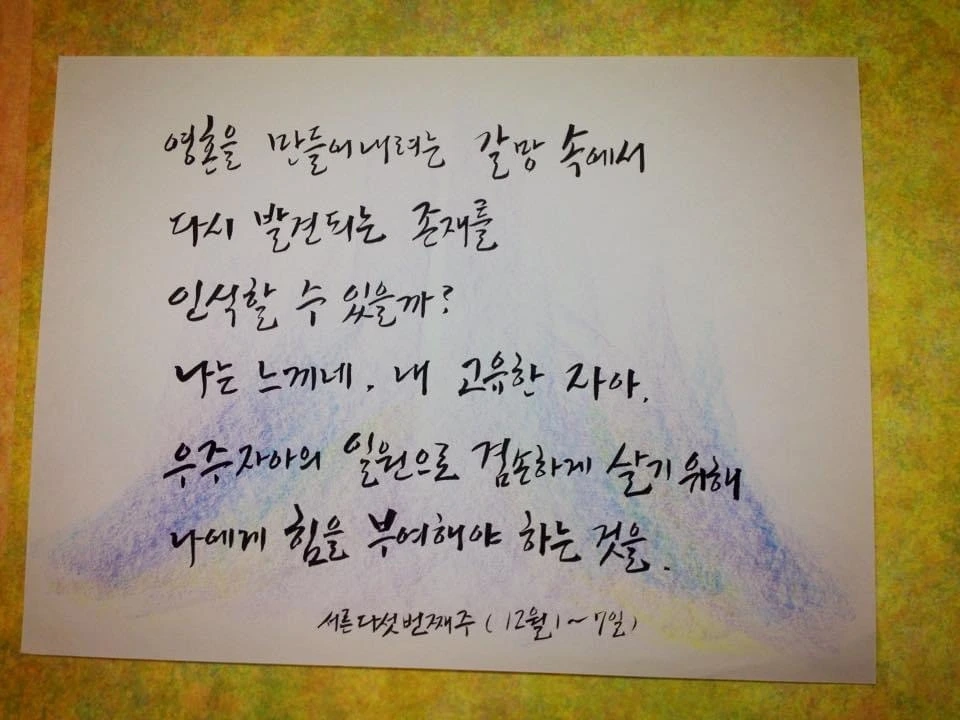 영혼을 만들어내려는 갈망 속에서
다시 발견되는 존재를
인식할 수 있을까?
나는 느끼네, 내 고유한 자아,
우주자아의 일원으로 겸손하게 살기 위해
나에게 힘을 부여해야 하는 것을.
서른다섯번째주 (12월1~7일)